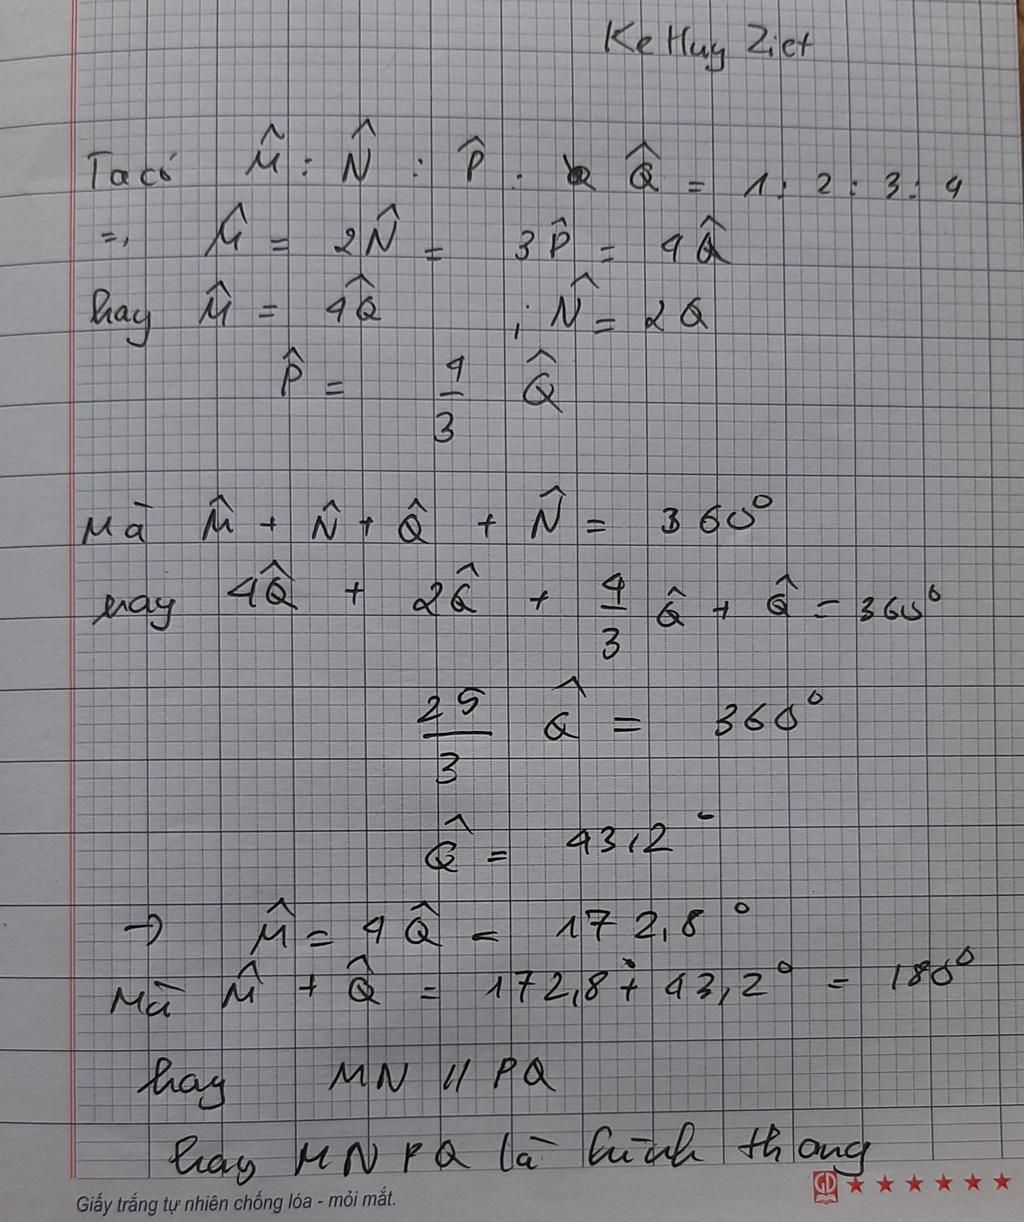 Ke Huy Ziet
Ta có M̂ : N̂ : P̂ : Q̂ = 1 : 2 : 3 : 4
=> M̂ = 2N̂ = 3P̂ = 4Q̂
hay M̂ = 4Q̂ ; N̂ = 2Q
P̂ = 4/3 Q̂
Mà M̂ + N̂ + Q̂ + N̂ = 360°
hay 4Q̂ + 2Q̂ + 4/3 Q̂ + Q̂ = 360°
25/3 Q̂ = 360°
Q̂ = 43,2°
→ M̂ = 4Q̂ = 172,8°
Mà M̂ + Q̂ = 172,8° + 43,2° = 180°
hay MN // PQ
hay MNPQ là hình thang
Giấy trắng tự nhiên chống lóa - mỏi mắt.
GD